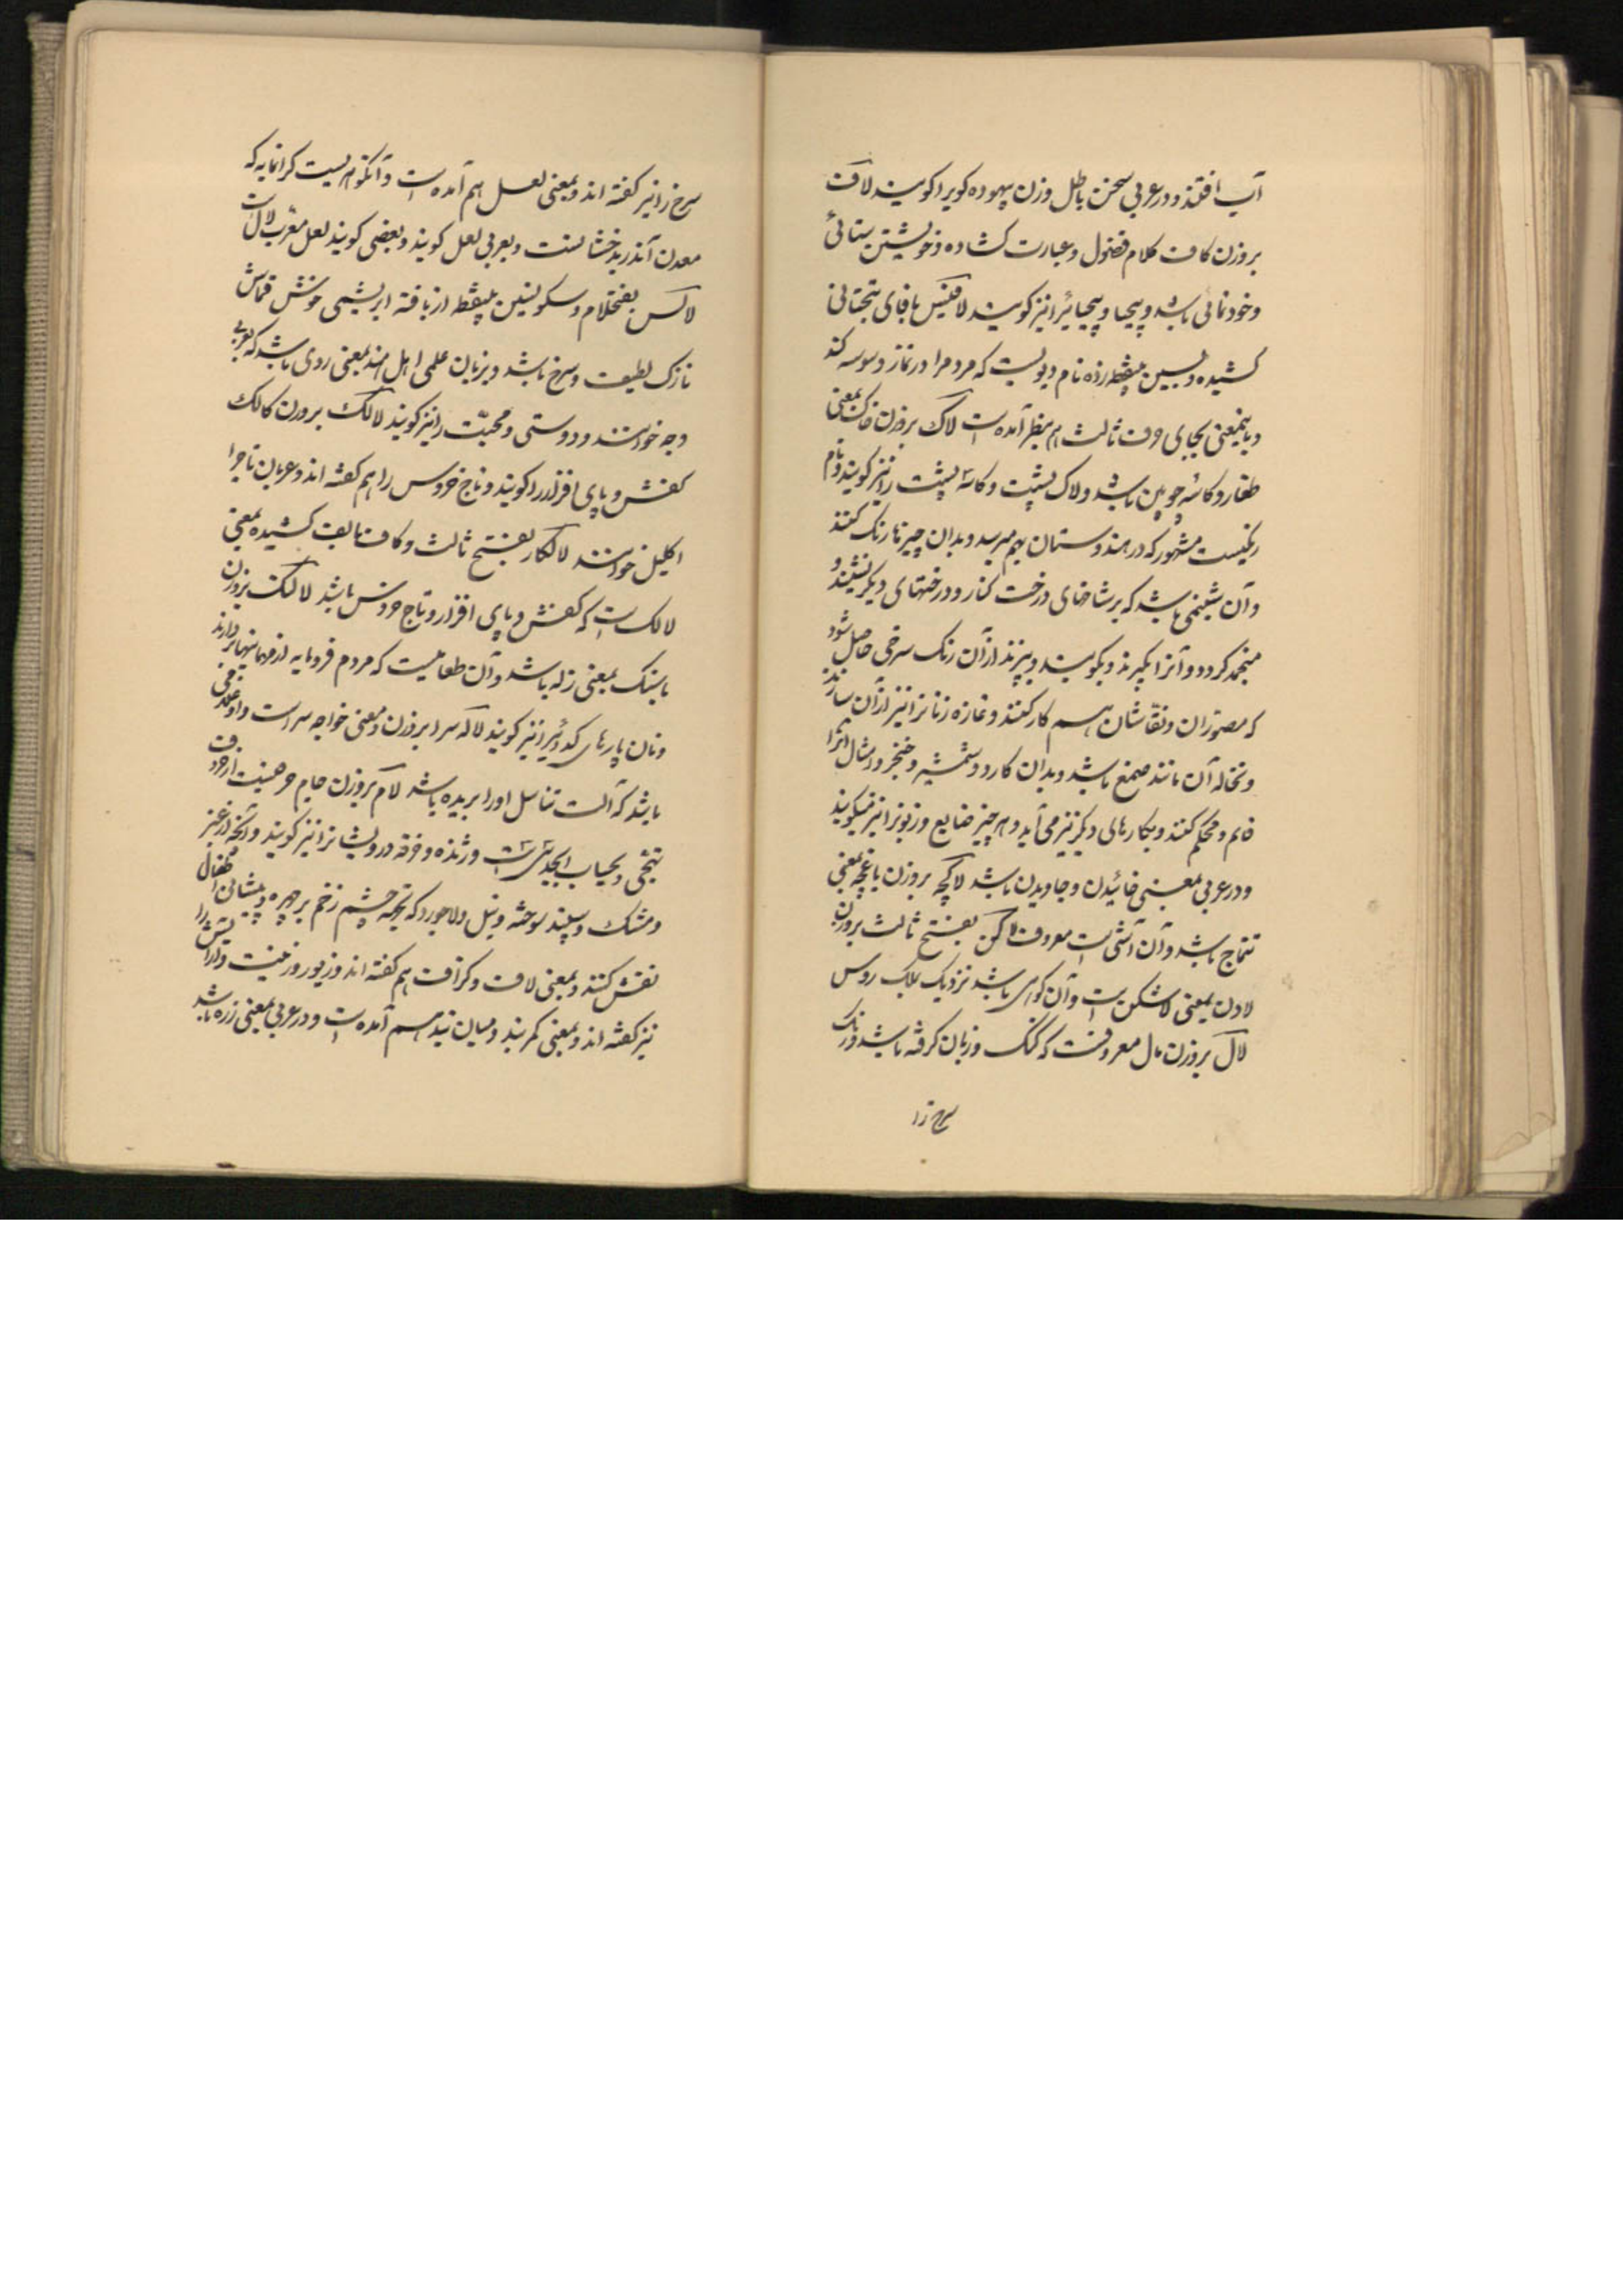 آب افتند و در عربی سخن باطل وزن بیهوده کویرا کویند لاف
بروزن کاف کلام فضول و عبارت کشاده و خویشتن ستائی
و خودنمائی باشد و بیحیا و بیحیائیرا نیز کویند لاقیس با قای تحتانی
کشیده و بسین بینقطه زده نام دیویست که مردمرا در نماز وسوسه کند
و باینمعنی بجای حرف ثالث هم بنظر آمده است لاک بروزن خاک بمعنی
طغار و کاسه چوبین باشد و لاک پشت و کاسه پشت را نیز کویند و نام
رنکیست مشهور که در هندوستان بهم میرسد و بدان چیزها رنک کنند
و آن شبنمی باشد که بر شاخهای درخت کنار و درختهای دیکر نشیند و
منجمد کردد و آنرا بکیرند و بکوبند و بپزند از آن رنک سرخی حاصل شود
که مصوّران و نقّاشان هم کار کنند و غازه زنانرا نیز از آن سازند
و نخاله آن مانند صمغ باشد و بدان کارد و شمشیر و خنجر و امثال آنرا
قایم و محکم کنند و بکارهای دیکر نیز می آید و هر چیز ضایع و زبونرا نیز میکویند
و در عربی بمعنی خائیدن و جاویدن باشد لاکچه بروزن باغچه بمعنی
تتماج باشد و آن آشی است معروف لاکن بفتح ثالث بروزن
لادن بمعنی لاشکن است و آن کوهی باشد نزدیک بملک روس
لال بروزن مال معروفست که کنک و زبان کرفته باشد و رنک
سرخ را
سرخ را نیز کفته اند و بمعنی لعل هم آمده است و آنکوهریست کرانمایه که
معدن آن در بدخشانست و بعربی لعل کویند و بعضی کویند لعل معرّب لال است
لاکس بفتح لام و سکون سین بینقطه از بافته ابریشمی خوش قماش
نازک لطیف و سرخ باشد و بزبان علمی اهل هند بمعنی روی باشد که بعربی
وجه خوانند و دوستی و محبّت را نیز کویند لالک بروزن کالک
کفش و پای افزار را کویند و تاج خروس را هم کفته اند و عربان تاجرا
اکلیل خوانند لالکا بفتح ثالث و کاف بالف کشیده بمعنی
لالک است که کفش و پای افزار و تاج خروس باشد لالنک بروزن
باسنک بمعنی زله باشد و آن طعامیست که مردم فرومایه از مهمانیها بردارند
و نان پارهای کدائیرا نیز کویند لاله سرا بروزن و معنی خواجه سرا است و او غلامی
باشد که آلت تناسل او را بریده باشد لام بروزن جام حرفیست از حروف
تهجّی و بحساب ابجد سی است و ژنده و خرقه درویشانرا نیز کویند و آنچه از عنبر
و مشک و سپند سوخته و نیل و لاجورد که بجهة چشم زخم بر چهره و پیشانی اطفال
نقش کنند و بمعنی لاف و کزاف هم کفته اند و زیور و زینت و آرایش را
نیز کفته اند و بمعنی کمربند و میان بند هم آمده است و در عربی بمعنی زره باشد